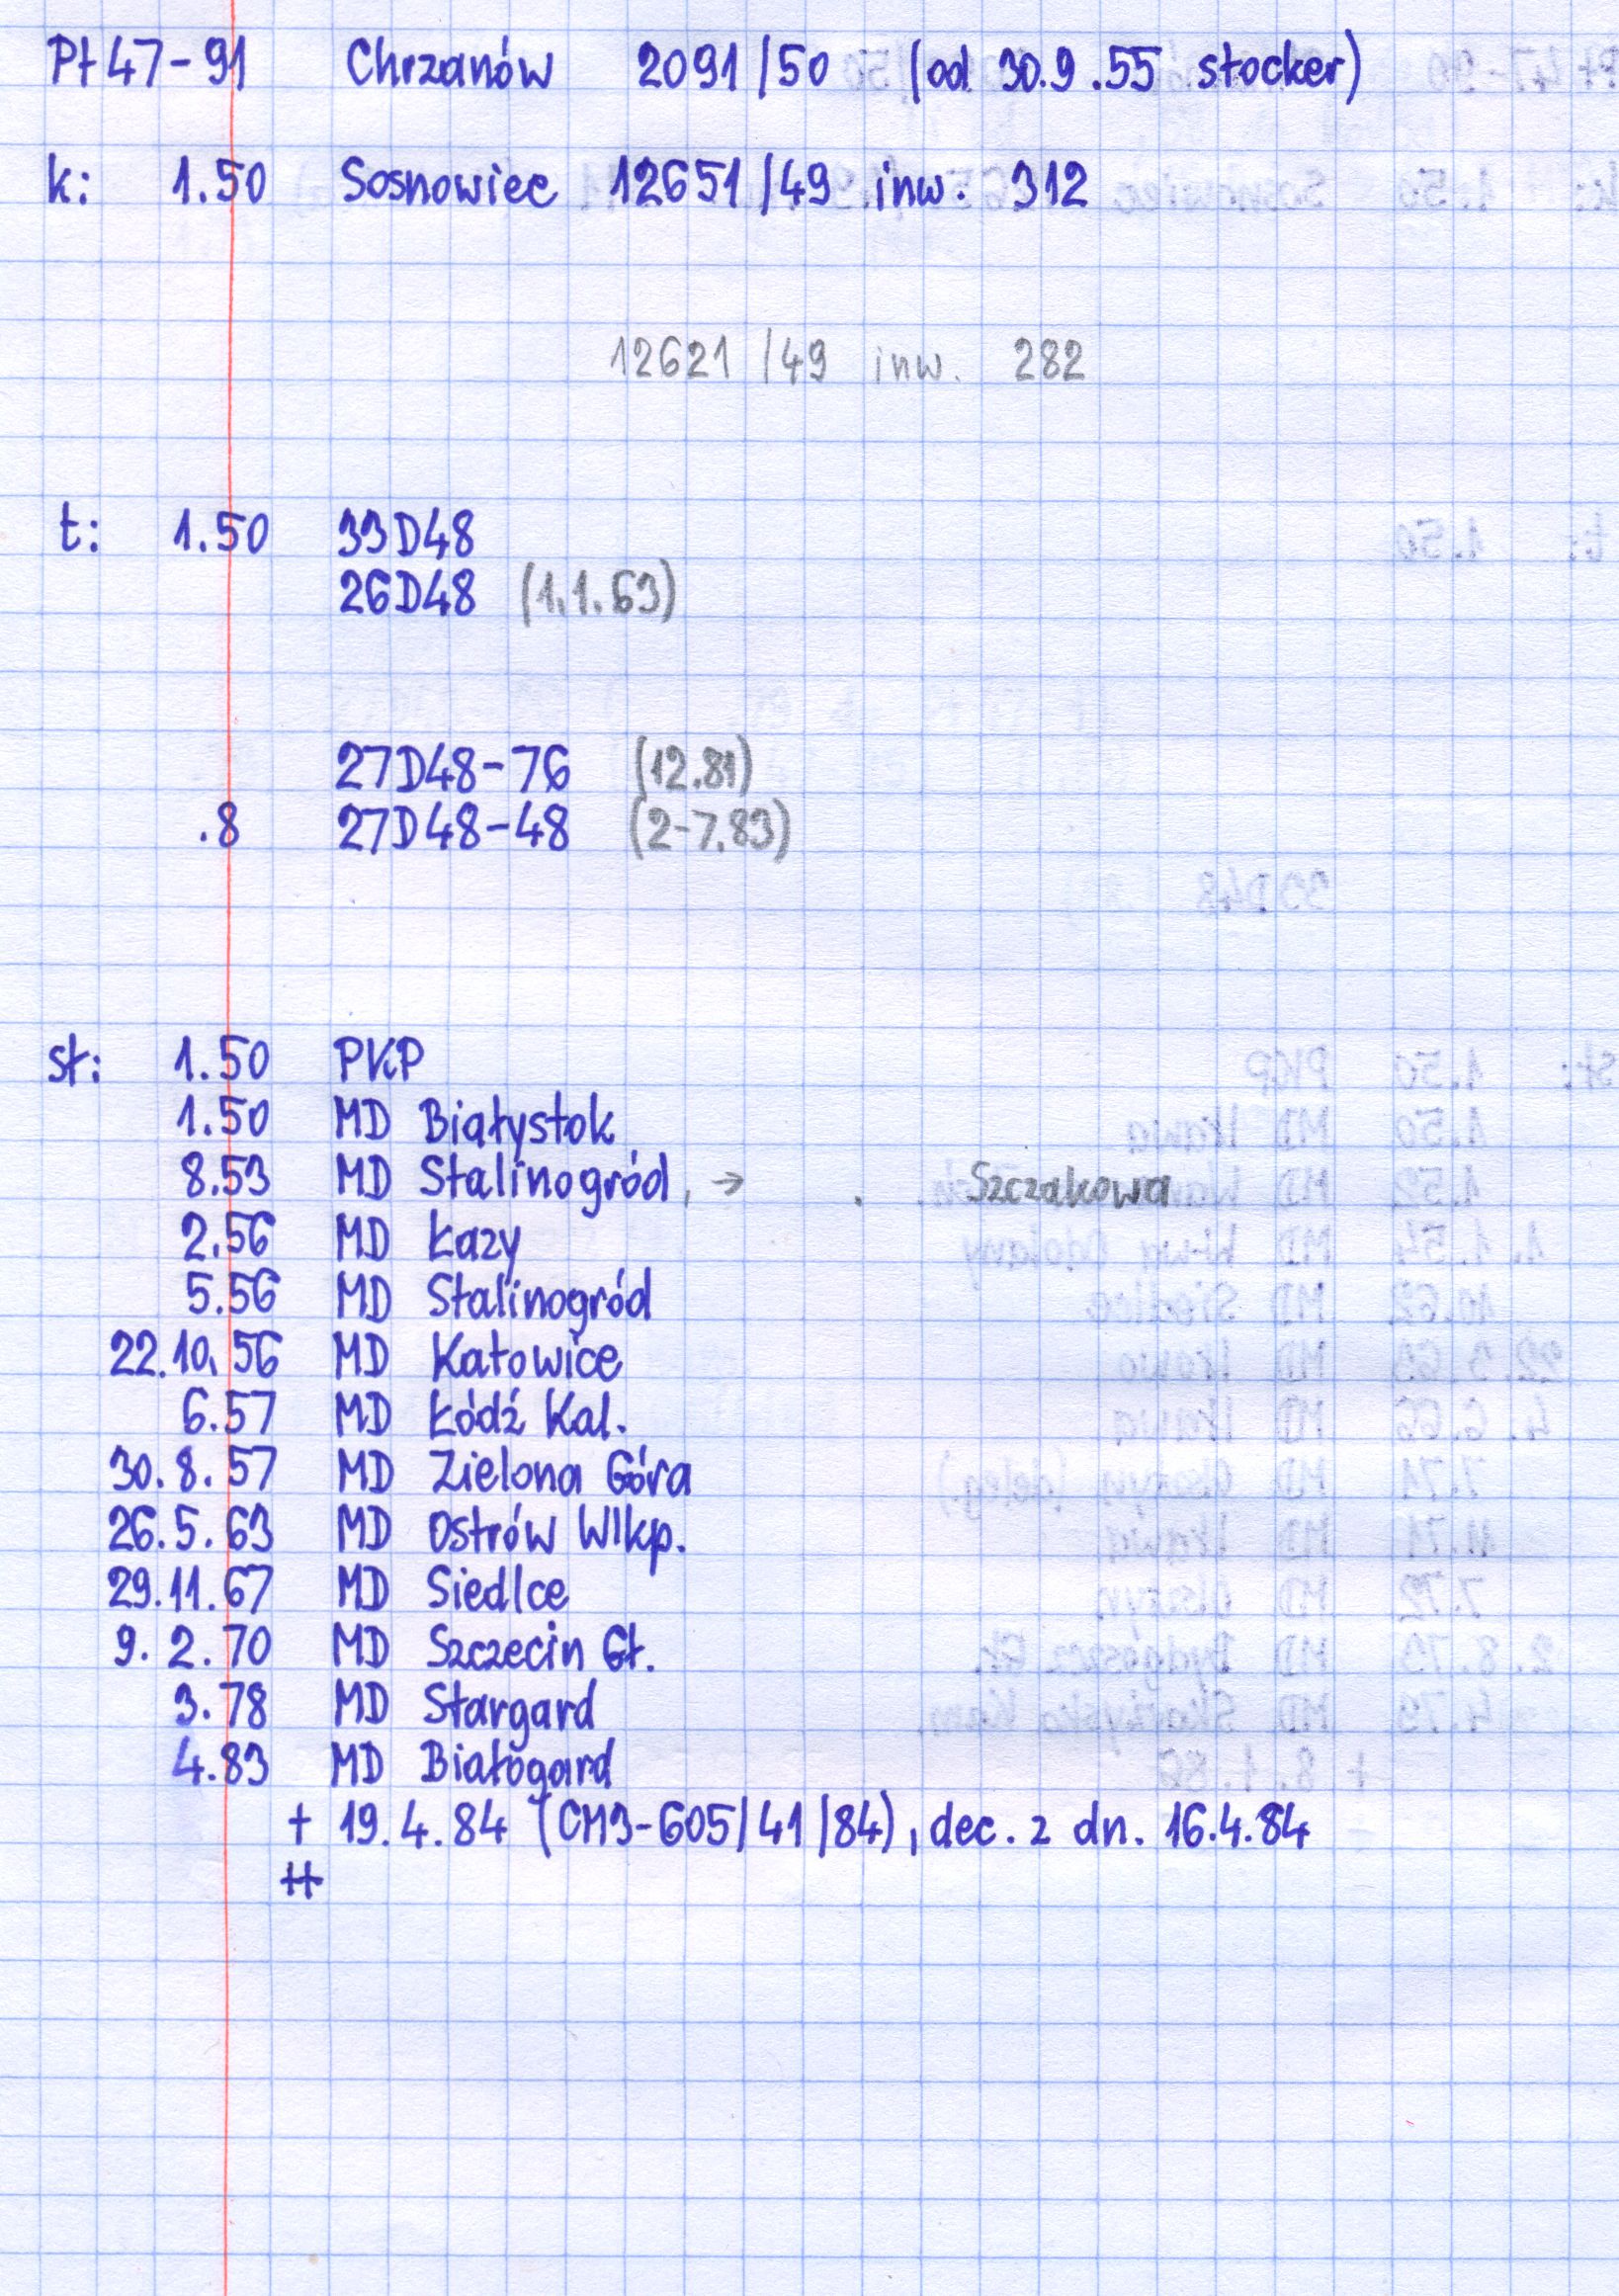 Pt47-91 Chrzanów 2091/50 (od 30.9.55 stocker)
k: 1.50 Sosnowiec 12651/49 inw. 312
12621/49 inw. 282
t: 1.50 33D48
26D48 (1.1.63)
27D48-76 (12.81)
.8 27D48-48 (2-7.83)
st: 1.50 PKP
1.50 MD Białystok
8.53 MD Stalinogród, → . Szczakowa
2.56 MD Łazy
5.56 MD Stalinogród
22.10.56 MD Katowice
6.57 MD Łódź Kal.
30.8.57 MD Zielona Góra
26.5.63 MD Ostrów Wlkp.
29.11.67 MD Siedlce
9.2.70 MD Szczecin Gł.
3.78 MD Stargard
4.83 MD Białogard
+ 19.4.84 (CM3-605/41/84), dec. z dn. 16.4.84
++